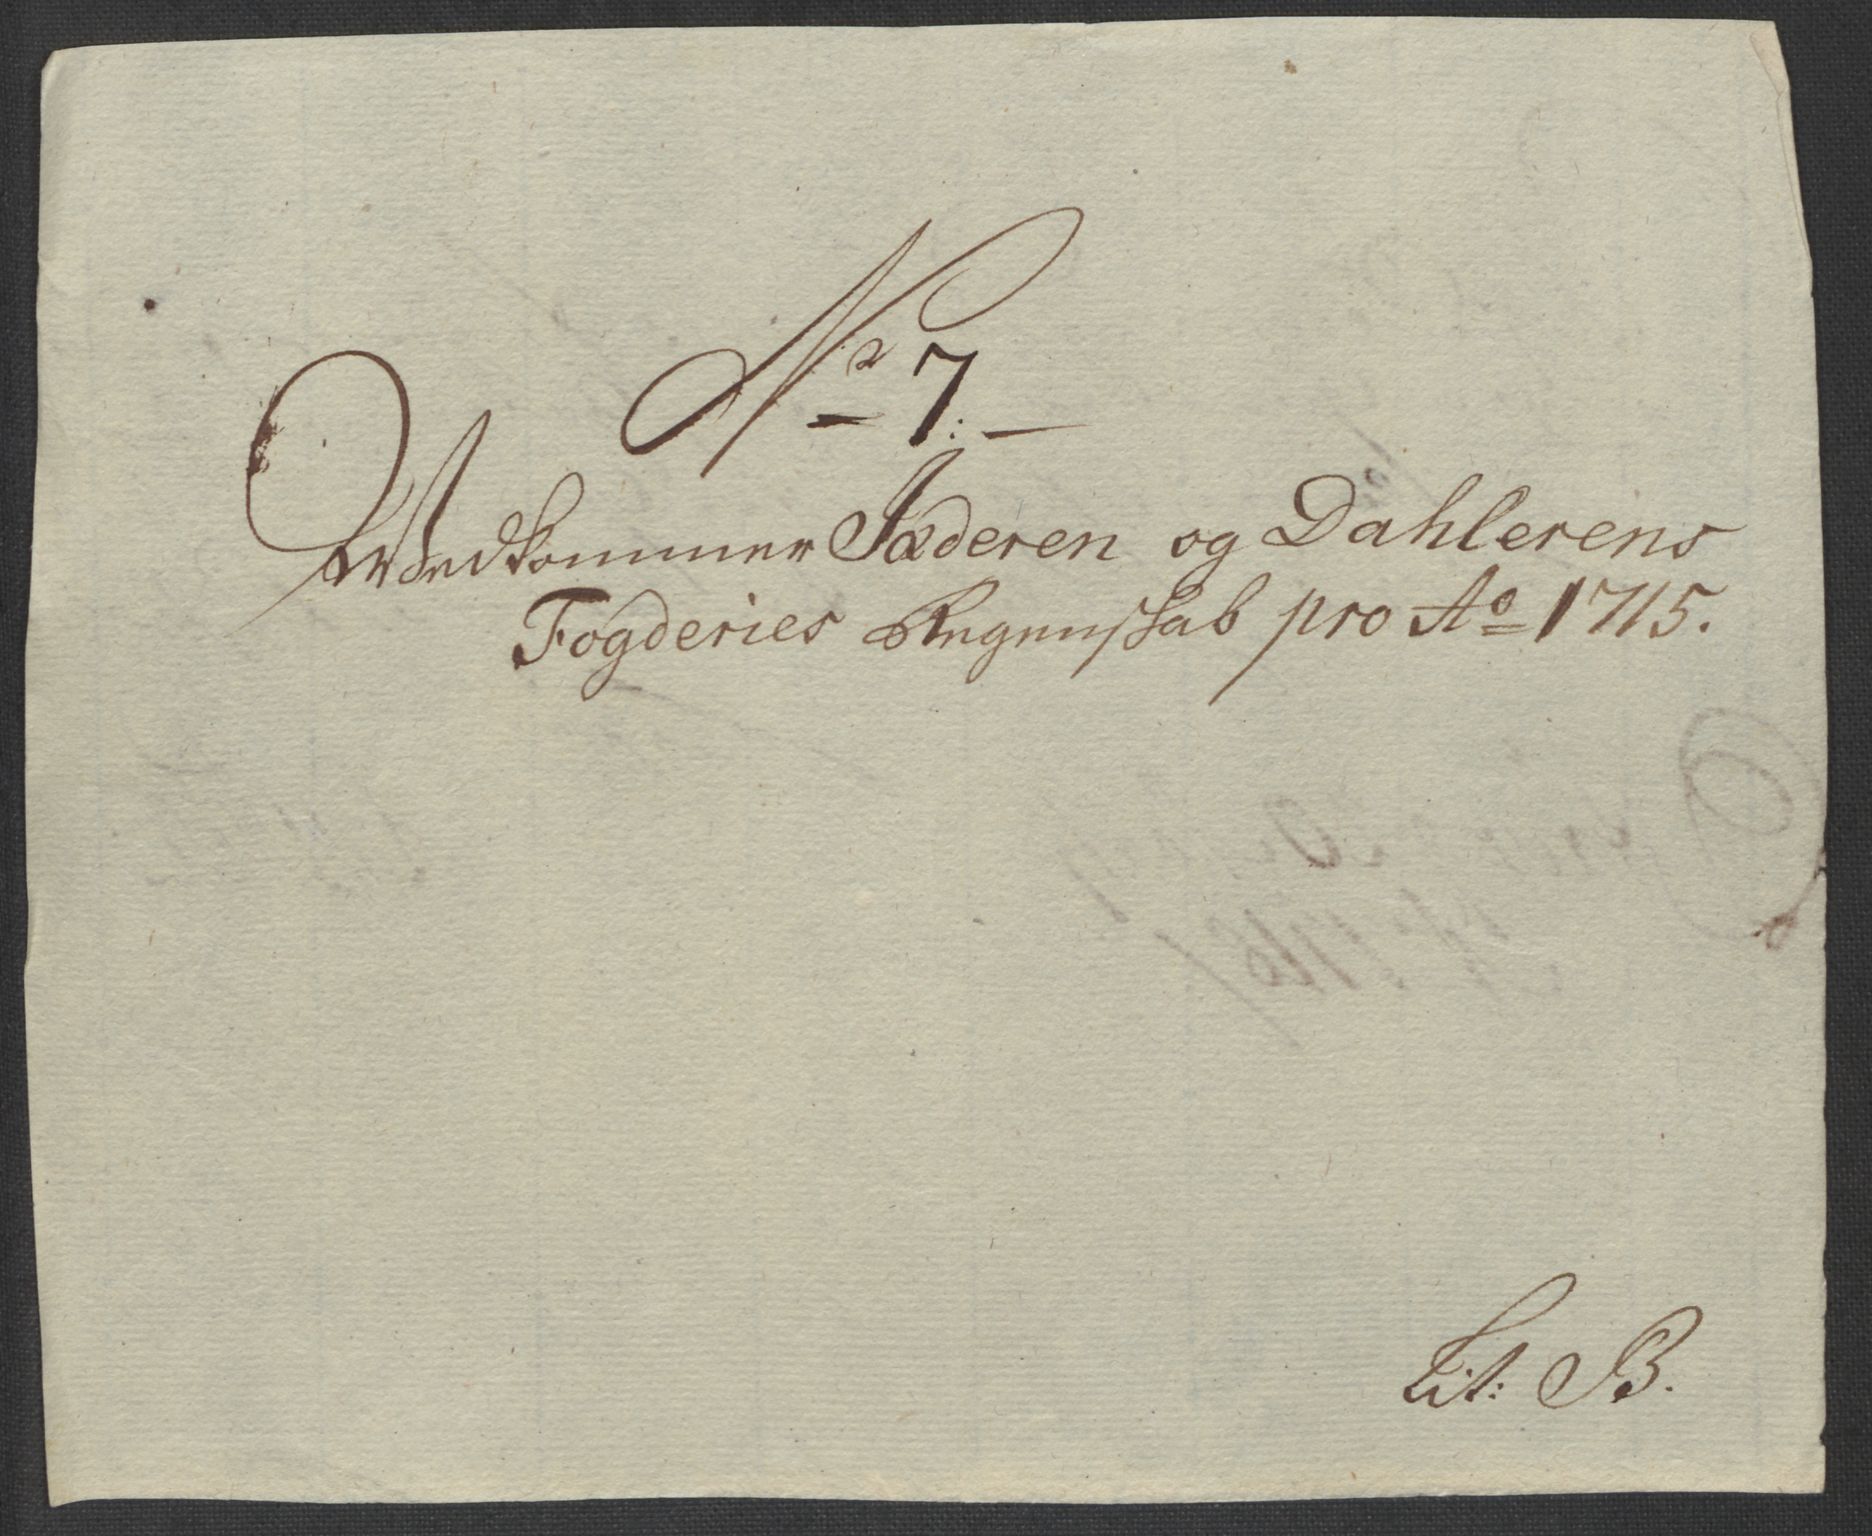 No 7.
Wedkommer Jæderen og Dahlerens
Fogderies Regenskab pro Ao 1715.
Lit: B.